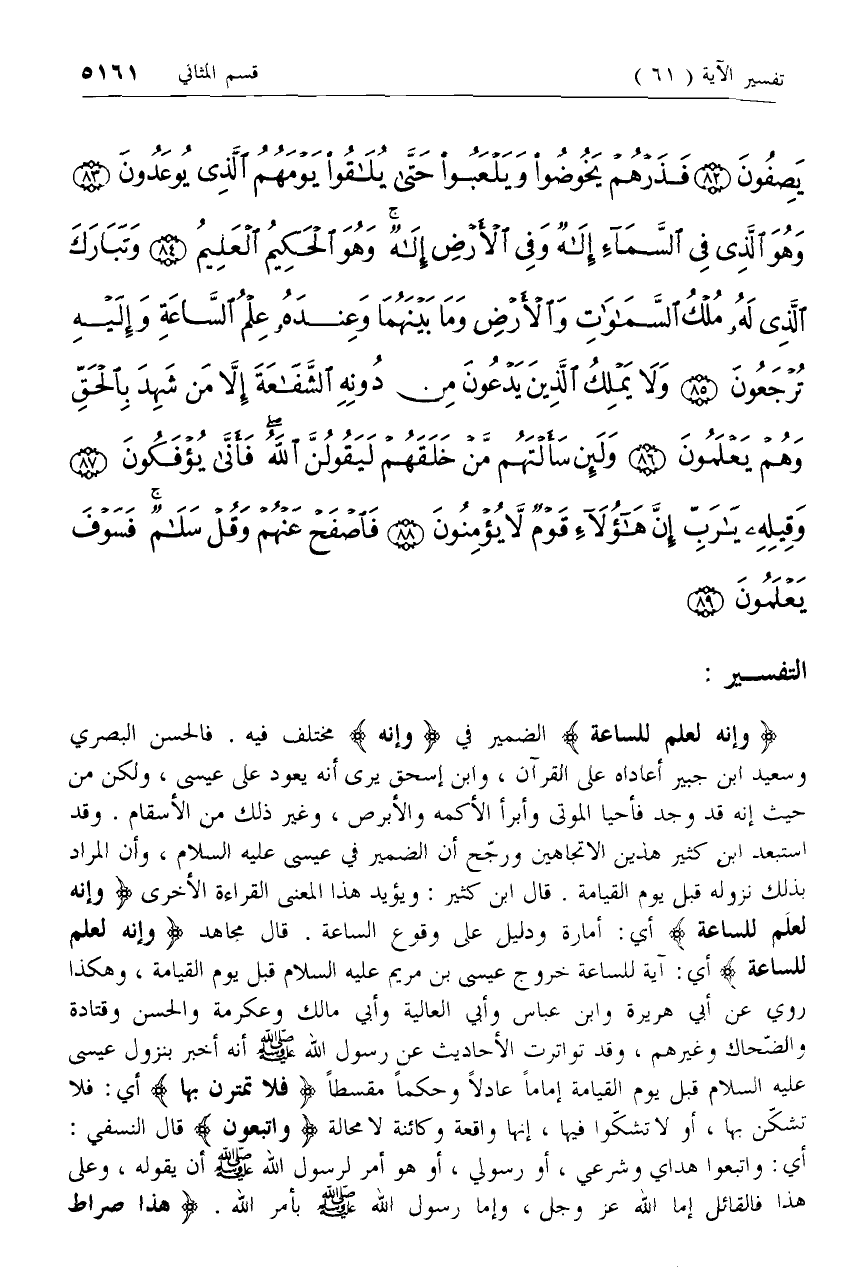 تفسير الآية ( ٦١ ) قسم المثاني ٥١٦١
يَصِفُونَ ﴿٨٢﴾ فَذَرْهُمْ يَخُوضُوا۟ وَيَلْعَبُوا۟ حَتَّىٰ يُلَـٰقُوا۟ يَوْمَهُمُ ٱلَّذِى يُوعَدُونَ ﴿٨٣﴾
وَهُوَ ٱلَّذِى فِى ٱلسَّمَآءِ إِلَـٰهٌ وَفِى ٱلْأَرْضِ إِلَـٰهٌ ۚ وَهُوَ ٱلْحَكِيمُ ٱلْعَلِيمُ ﴿٨٤﴾ وَتَبَارَكَ
ٱلَّذِى لَهُۥ مُلْكُ ٱلسَّمَـٰوَٰتِ وَٱلْأَرْضِ وَمَا بَيْنَهُمَا وَعِندَهُۥ عِلْمُ ٱلسَّاعَةِ وَإِلَيْهِ
تُرْجَعُونَ ﴿٨٥﴾ وَلَا يَمْلِكُ ٱلَّذِينَ يَدْعُونَ مِن دُونِهِ ٱلشَّفَـٰعَةَ إِلَّا مَن شَهِدَ بِٱلْحَقِّ
وَهُمْ يَعْلَمُونَ ﴿٨٦﴾ وَلَئِن سَأَلْتَهُم مَّنْ خَلَقَهُمْ لَيَقُولُنَّ ٱللَّهُ ۖ فَأَنَّىٰ يُؤْفَكُونَ ﴿٨٧﴾
وَقِيلِهِۦ يَـٰرَبِّ إِنَّ هَـٰٓؤُلَآءِ قَوْمٌ لَّا يُؤْمِنُونَ ﴿٨٨﴾ فَٱصْفَحْ عَنْهُمْ وَقُلْ سَلَـٰمٌ ۚ فَسَوْفَ
يَعْلَمُونَ ﴿٨٩﴾
التفسير :
﴿ وإنه لعلم للساعة ﴾ الضمير في ﴿ وإنه ﴾ مختلف فيه . فالحسن البصري
وسعيد ابن جبير أعاداه على القرآن ، وابن إسحق يرى أنه يعود على عيسى ، ولكن من
حيث إنه قد وجد فأحيا الموتى وأبرأ الأكمه والأبرص ، وغير ذلك من الأسقام . وقد
استبعد ابن كثير هذين الاتجاهين ورجّح أن الضمير في عيسى عليه السلام ، وأن المراد
بذلك نزوله قبل يوم القيامة . قال ابن كثير : ويؤيد هذا المعنى القراءة الأخرى ﴿ وإنه
لعلَم للساعة ﴾ أي: أمارة ودليل على وقوع الساعة . قال مجاهد ﴿ وإنه لعلم
للساعة ﴾ أي: آية للساعة خروج عيسى بن مريم عليه السلام قبل يوم القيامة ، وهكذا
روي عن أبي هريرة وابن عباس وأبي العالية وأبي مالك وعكرمة والحسن وقتادة
والضّحاك وغيرهم ، وقد تواترت الأحاديث عن رسول الله ﷺ أنه أخبر بنزول عيسى
عليه السلام قبل يوم القيامة إماماً عادلاً وحكماً مقسطاً ﴿ فلا تمترن بها ﴾ أي: فلا
تشكّن بها ، أو لا تشكّوا فيها ، إنها واقعة وكائنة لا محالة ﴿ واتبعون ﴾ قال النسفي :
أي: واتبعوا هداي وشرعي ، أو رسولي ، أو هو أمر لرسول الله ﷺ أن يقوله ، وعلى
هذا فالقائل إما الله عز وجل ، وإما رسول الله ﷺ بأمر الله . ﴿ هذا صراط